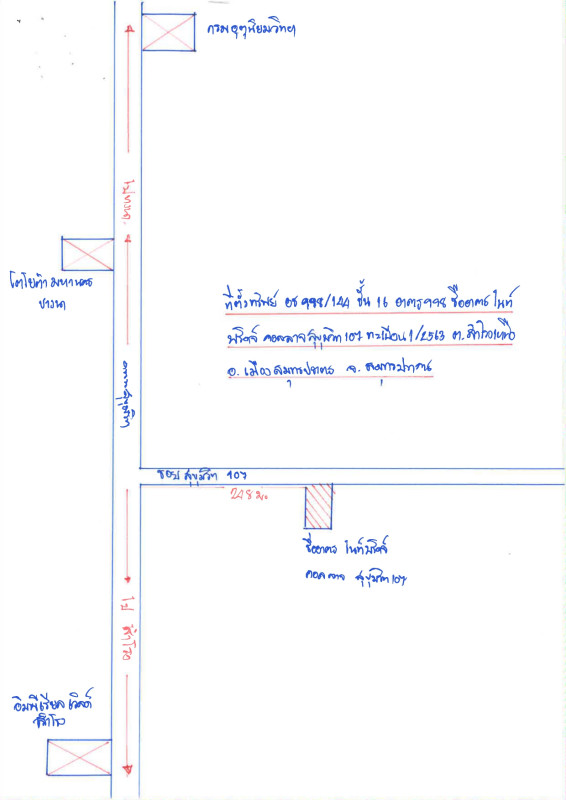 กรมอุตุนิยมวิทยา
ไปบางนา
โตโยต้า มหานคร
บางนา
ที่ตั้งทรัพย์ อช 998/144 ชั้น 16 อาคาร 998 ชื่ออาคาร ไนท์
บริดจ์ คอลลาจ สุขุมวิท 107 ทะเบียน 1/2563 ต. สำโรงเหนือ
อ. เมืองสมุทรปราการ จ. สมุทรปราการ
ถนนสุขุมวิท
ซอย สุขุมวิท 107
248 ม.
ชื่ออาคาร ไนท์บริดจ์
คอลลาจ สุขุมวิท 107
ไป สำโรง
อิมพีเรียล เวิลด์
สำโรง